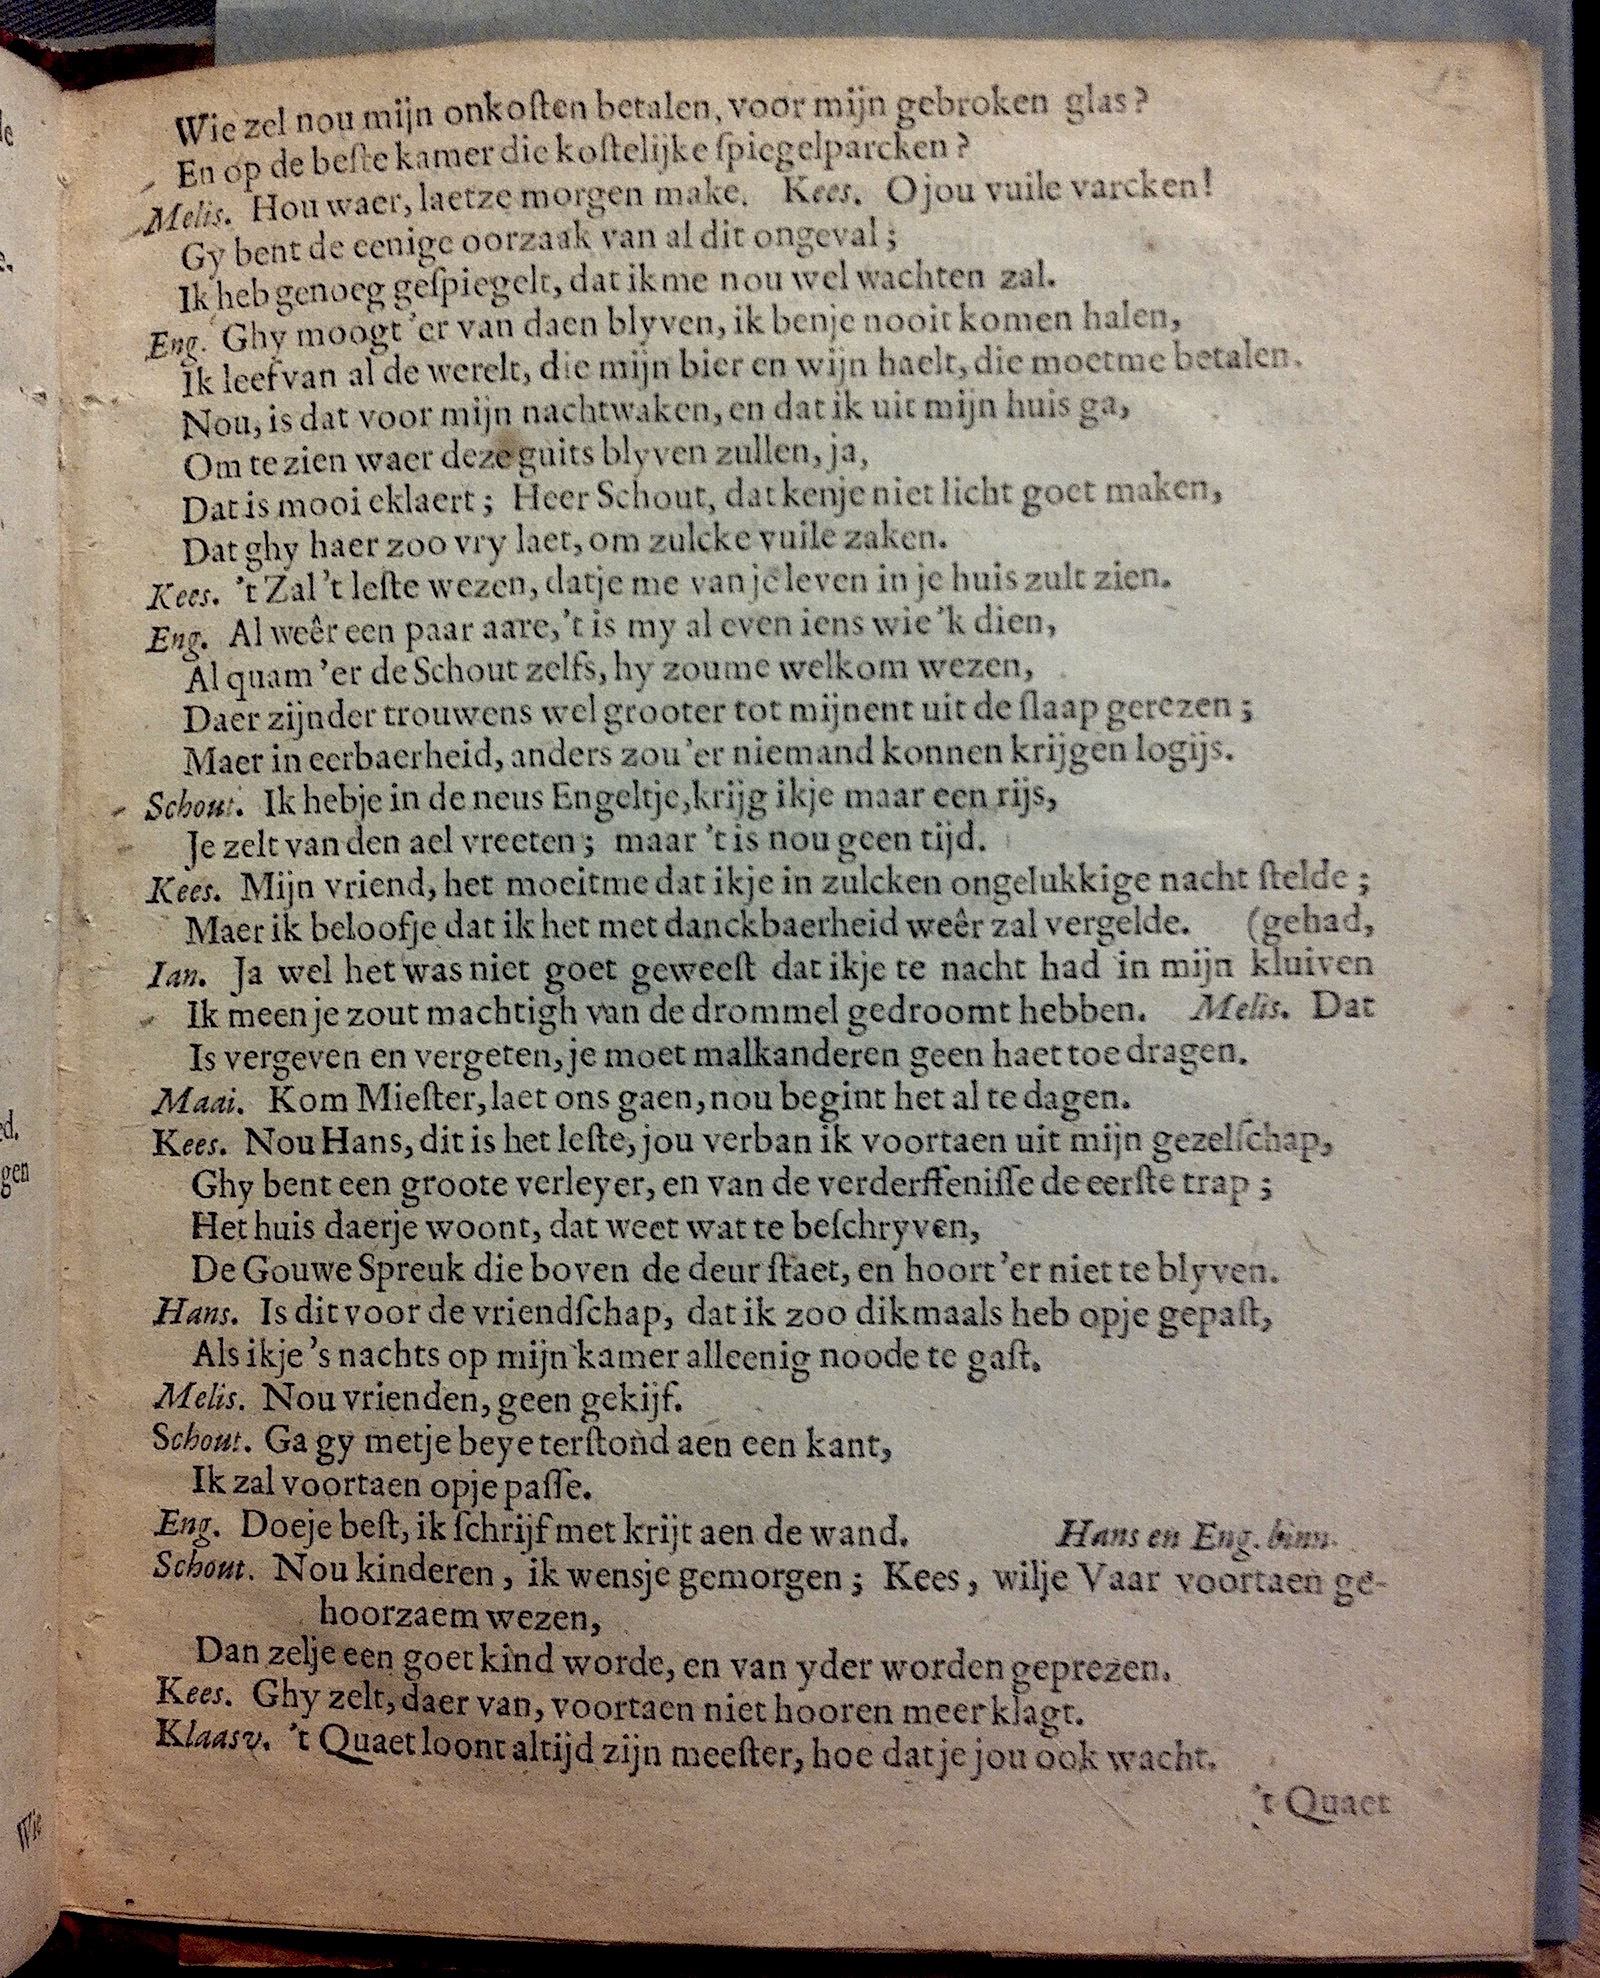 Wie zel nou mijn onkoſten betalen, voor mijn gebroken glas?
En op de beſte kamer die koſtelijke ſpiegelparcken?
Melis. Hou waer, laetze morgen make. Kees. O jou vuile varcken!
Gy bent de eenige oorzaak van al dit ongeval;
Ik heb genoeg geſpiegelt, dat ik me nou wel wachten zal.
Eng. Ghy moogt 'er van daen blyven, ik benje nooit komen halen,
Ik leef van al de werelt, die mijn bier en wijn haelt, die moetme betalen.
Nou, is dat voor mijn nachtwaken, en dat ik uit mijn huis ga,
Om te zien waer deze guits blyven zullen, ja,
Dat is mooi eklaert; Heer Schout, dat kenje niet licht goet maken,
Dat ghy haer zoo vry laet, om zulcke vuile zaken.
Kees. 't Zal 't leſte wezen, datje me van je leven in je huis zult zien.
Eng. Al weêr een paar aare, 't is my al even iens wie 'k dien,
Al quam 'er de Schout zelfs, hy zoume welkom wezen,
Daer zijnder trouwens wel grooter tot mijnent uit de ſlaap gerezen;
Maer in eerbaerheid, anders zou 'er niemand konnen krijgen logijs.
Schout. Ik hebje in de neus Engeltje, krijg ikje maar een rijs,
Je zelt van den ael vreeten; maar 't is nou geen tijd.
Kees. Mijn vriend, het moeitme dat ikje in zulcken ongelukkige nacht ſtelde;
Maer ik beloofje dat ik het met danckbaerheid weêr zal vergelde. (gehad,
Ian. Ja wel het was niet goet geweeſt dat ikje te nacht had in mijn kluiven
Ik meen je zout machtigh van de drommel gedroomt hebben. Melis. Dat
Is vergeven en vergeten, je moet malkanderen geen haet toe dragen.
Maai. Kom Mieſter, laet ons gaen, nou begint het al te dagen.
Kees. Nou Hans, dit is het leſte, jou verban ik voortaen uit mijn gezelſchap,
Ghy bent een groote verleyer, en van de verderffeniſſe de eerſte trap;
Het huis daerje woont, dat weet wat te beſchryven,
De Gouwe Spreuk die boven de deur ſtaet, en hoort 'er niet te blyven.
Hans. Is dit voor de vriendſchap, dat ik zoo dikmaals heb opje gepaſt,
Als ikje 's nachts op mijn kamer alleenig noode te gaſt.
Melis. Nou vrienden, geen gekijf.
Schout. Ga gy metje beye terſtond aen een kant,
Ik zal voortaen opje paſſe.
Eng. Doeje beſt, ik ſchrijf met krijt aen de wand. Hans en Eng. binn.
Schout. Nou kinderen, ik wensje gemorgen; Kees, wilje Vaar voortaen ge-
hoorzaem wezen,
Dan zelje een goet kind worde, en van yder worden geprezen.
Kees. Ghy zelt, daer van, voortaen niet hooren meer klagt.
Klaasv. 't Quaet loont altijd zijn meeſter, hoe datje jou ook wacht.
't Quaet